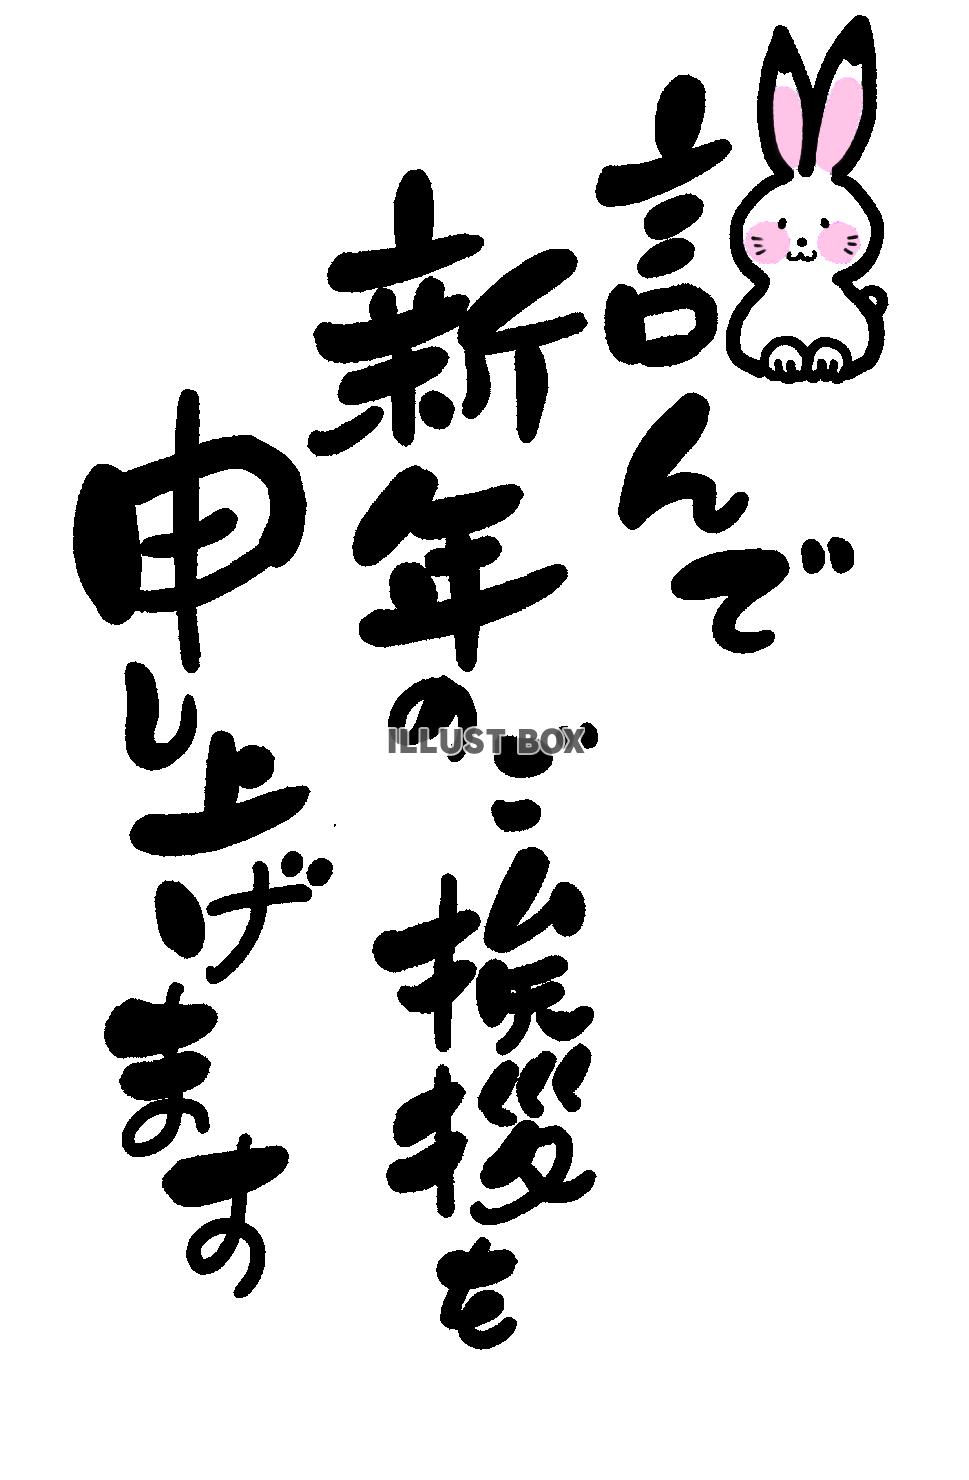 謹んで
新年のご挨拶を
申し上げます
ILLUST BOX